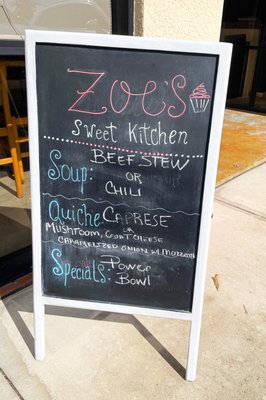 Zoe's
Sweet Kitchen
Soup: Beef Stew
or
Chili
Quiche: Caprese
or
Mushroom, Goat cheese
Caramelized onion w/ Mozzarella
Specials: Power
Bowl